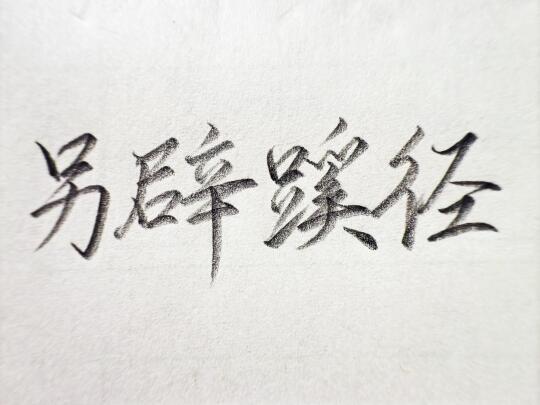 另辟蹊径